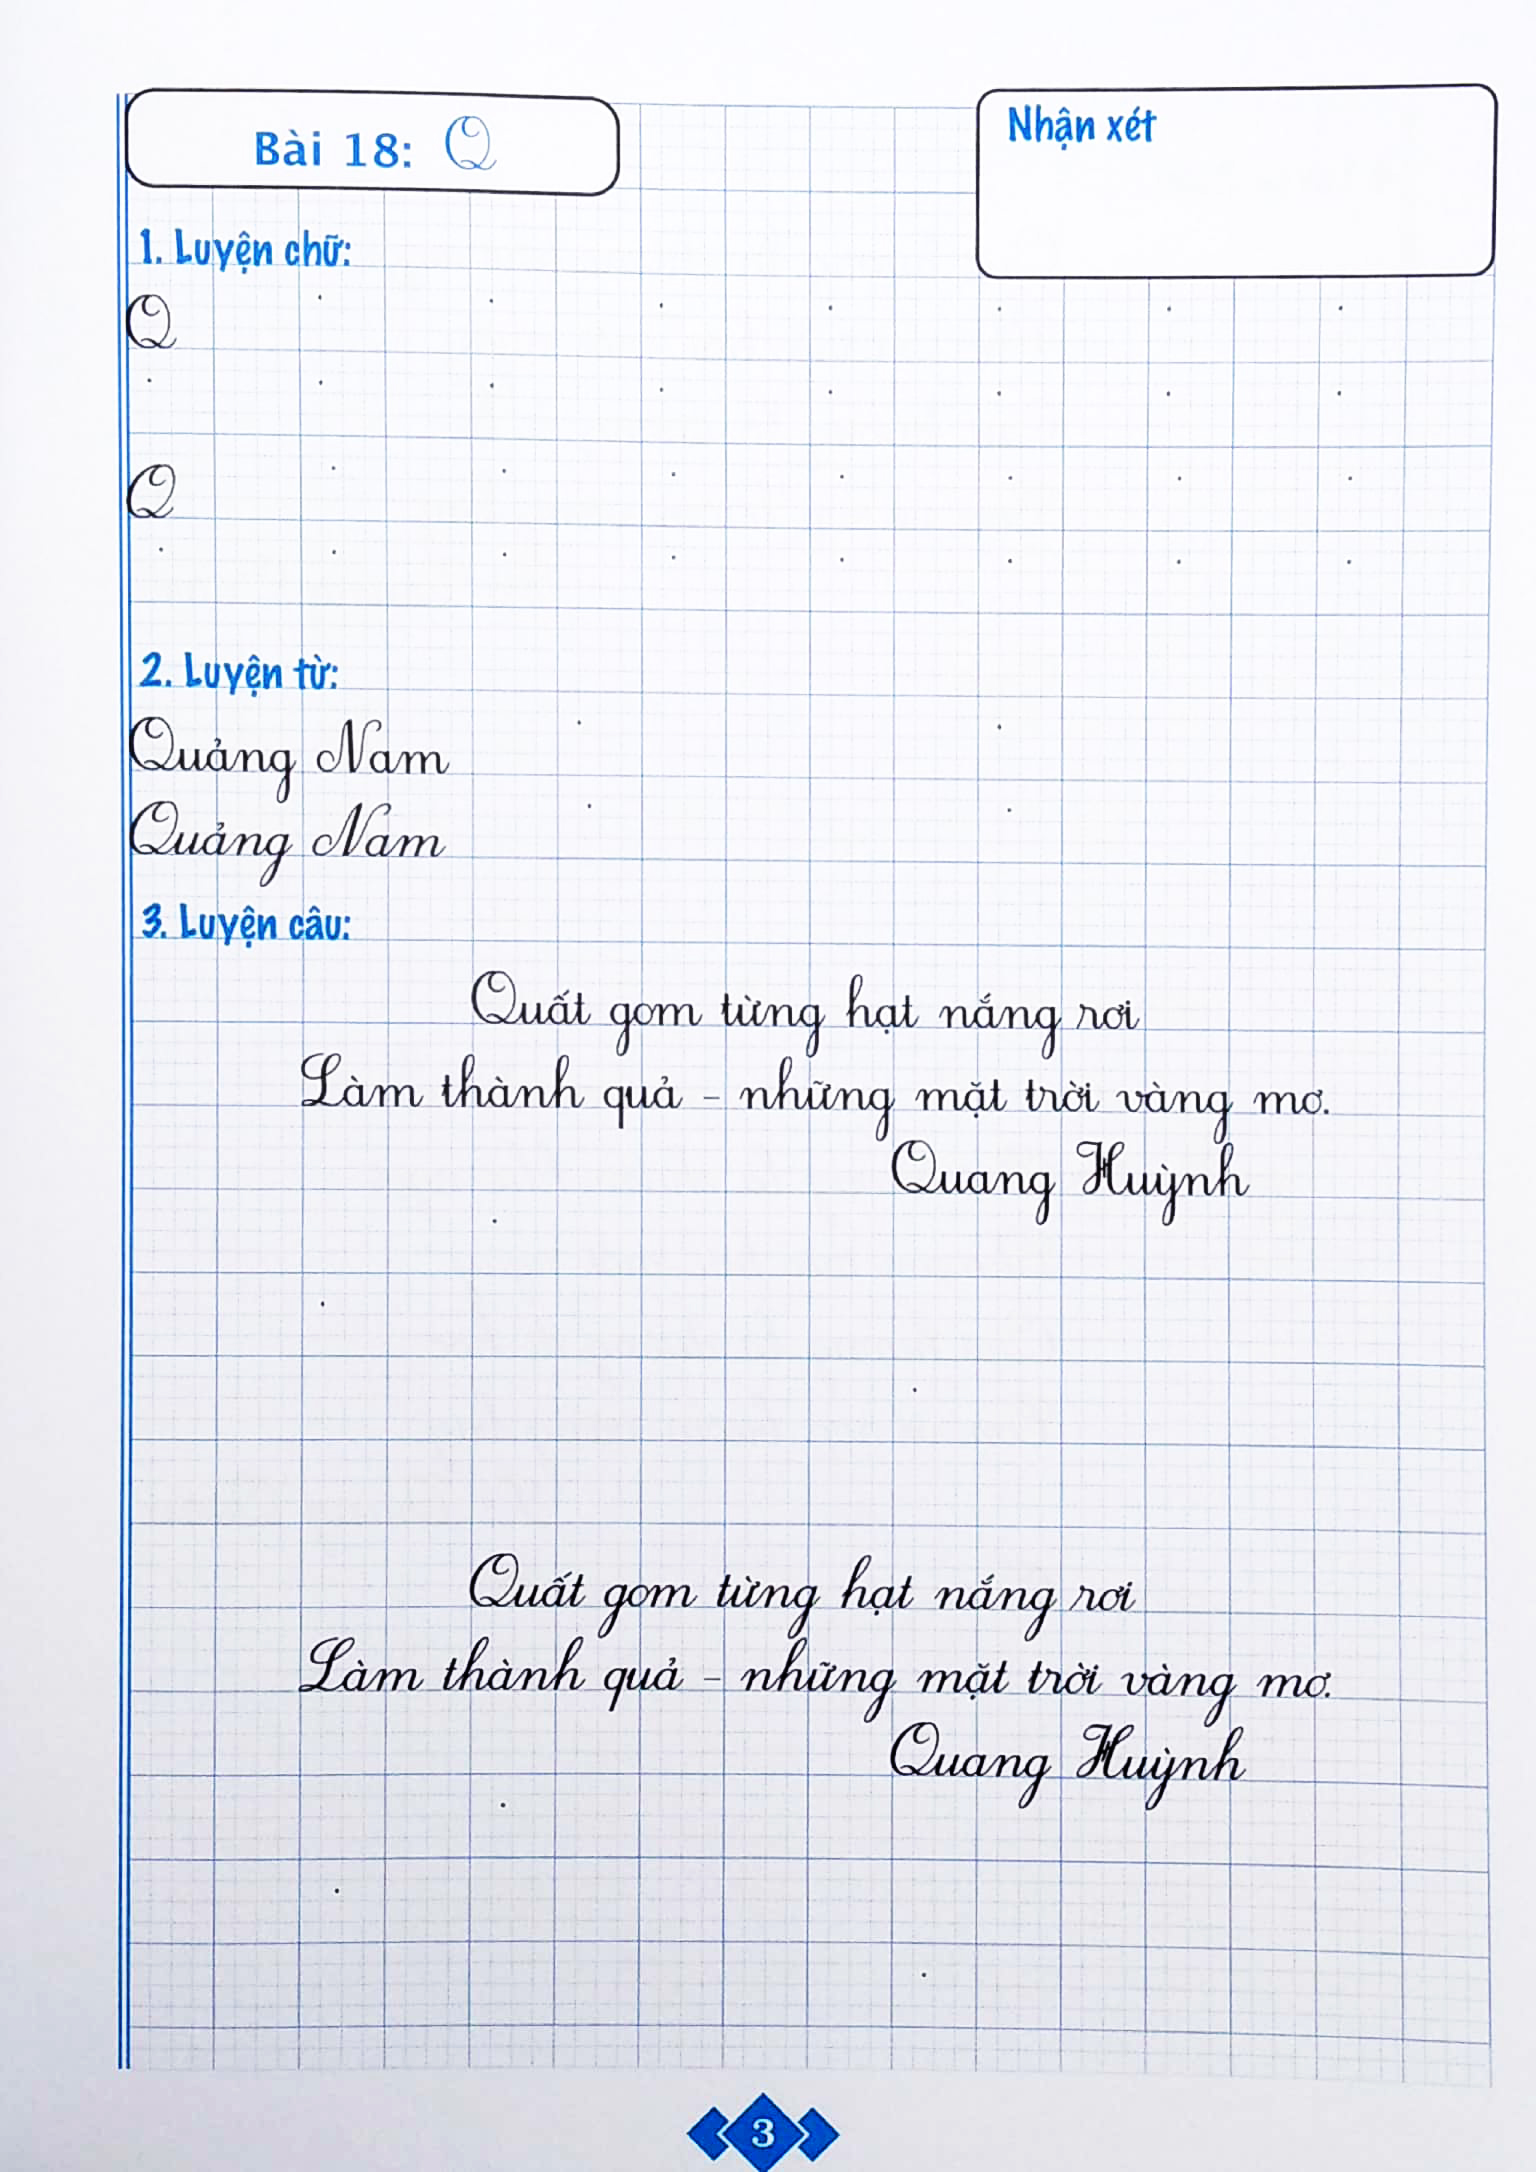 Bài 18: Q
Nhận xét
1. Luyện chữ:
Q
Q
2. Luyện từ:
Quảng Nam
Quảng Nam
3. Luyện câu:
Quất gom từng hạt nắng rơi
Làm thành quả - những mặt trời vàng mơ.
Quang Huỳnh
Quất gom từng hạt nắng rơi
Làm thành quả - những mặt trời vàng mơ.
Quang Huỳnh
3